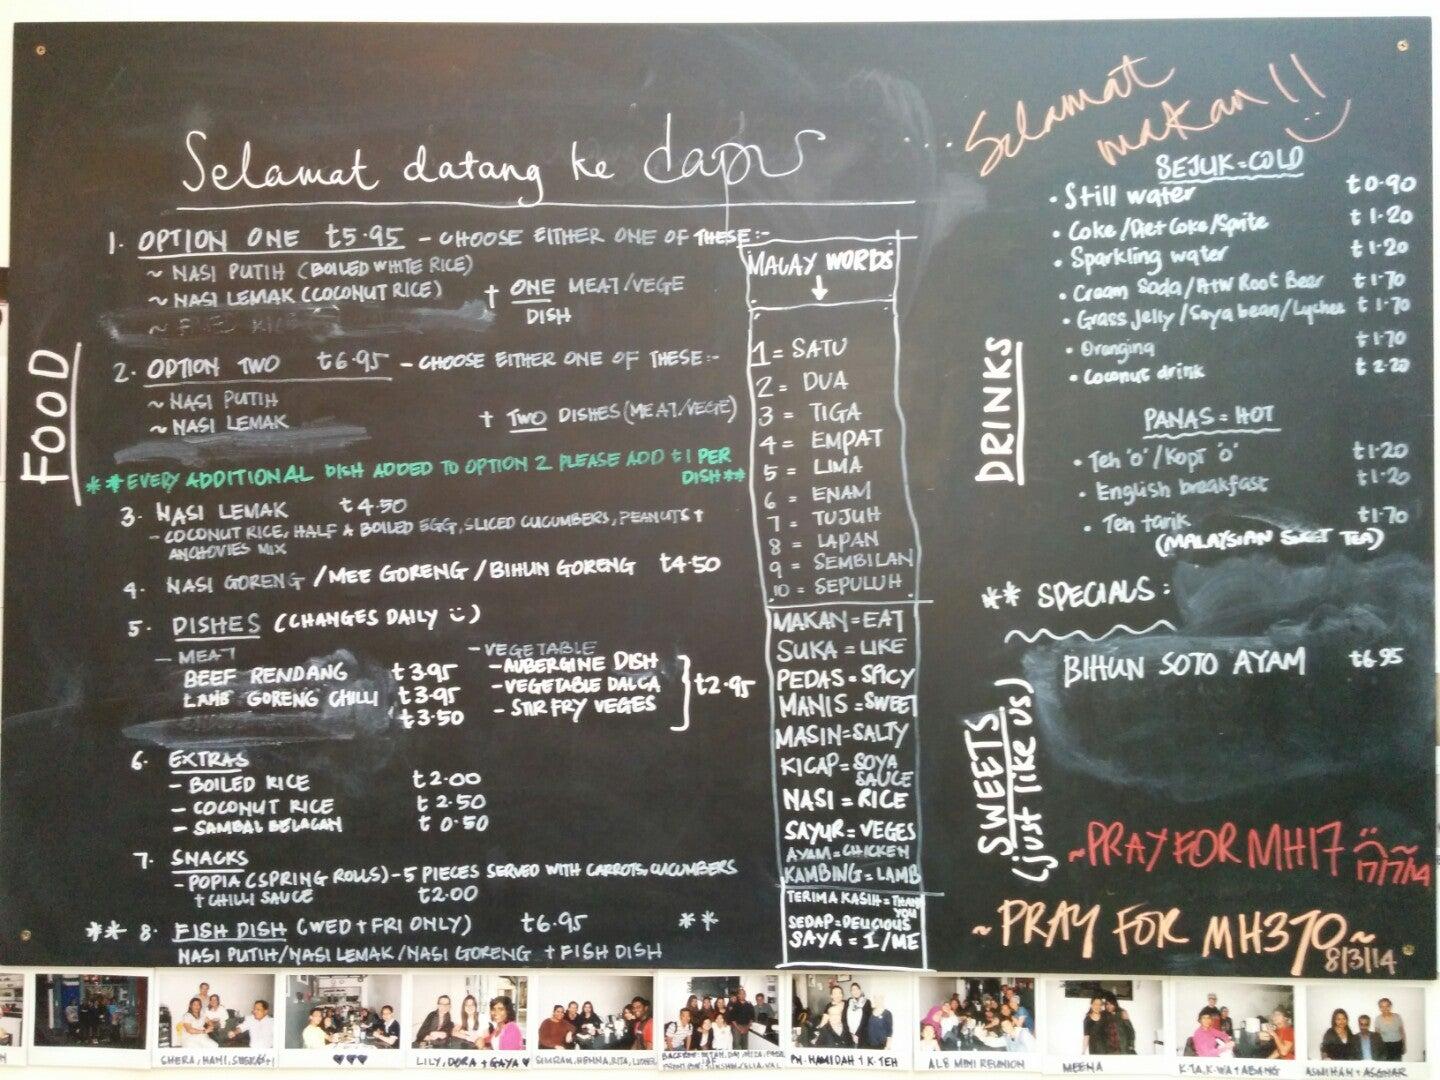 Selamat datang ke dapur
.... Selamat
makan!!
FOOD
1. OPTION ONE t5.95 - CHOOSE EITHER ONE OF THESE:-
~ NASI PUTIH (BOILED WHITE RICE)
~ NASI LEMAK (COCONUT RICE)
+ ONE MEAT/VEGE
DISH
2. OPTION TWO t6.95 - CHOOSE EITHER ONE OF THESE:-
~ NASI PUTIH
~ NASI LEMAK
+ TWO DISHES (MEAT/VEGE)
**EVERY ADDITIONAL DISH ADDED TO OPTION 2 PLEASE ADD t1 PER
DISH**
3. NASI LEMAK t4.50
- COCONUT RICE, HALF A BOILED EGG, SLICED CUCUMBERS, PEANUTS +
ANCHOVIES MIX
4. NASI GORENG / MEE GORENG / BIHUN GORENG t4.50
5. DISHES (CHANGES DAILY)
- MEAT
BEEF RENDANG t3.95
LAMB GORENG CHILLI t3.95
t3.50
- VEGETABLE
- AUBERGINE DISH
- VEGETABLE DALCA
- STIR FRY VEGES
t2.95
6. EXTRAS
- BOILED RICE t2.00
- COCONUT RICE t2.50
- SAMBAL BELACAN t0.50
7. SNACKS
- POPIA (SPRING ROLLS) - 5 PIECES SERVED WITH CARROTS, CUCUMBERS
+ CHILLI SAUCE t2.00
** 8. FISH DISH (WED + FRI ONLY) t6.95 **
NASI PUTIH/NASI LEMAK/NASI GORENG + FISH DISH
MALAY WORDS
1 = SATU
2 = DUA
3 = TIGA
4 = EMPAT
5 = LIMA
6 = ENAM
7 = TUJUH
8 = LAPAN
9 = SEMBILAN
10 = SEPULUH
MAKAN = EAT
SUKA = LIKE
PEDAS = SPICY
MANIS = SWEET
MASIN = SALTY
KICAP = SOYA
SAUCE
NASI = RICE
SAYUR = VEGES
AYAM = CHICKEN
KAMBING = LAMB
TERIMA KASIH = THANK
YOU
SEDAP = DELICIOUS
SAYA = I/ME
DRINKS
SEJUK = COLD
• Still water t0.90
• Coke/Diet Coke/Sprite t1.20
• Sparkling water t1.20
• Cream Soda/A+W Root Beer t1.70
• Grass jelly/Soya bean/Lychee t1.70
• Orangina t1.70
• Coconut drink t2.20
PANAS = HOT
• Teh 'o'/Kopi 'o' t1.20
• English breakfast t1.20
• Teh tarik t1.70
(MALAYSIAN SWEET TEA)
** SPECIALS:
BIHUN SOTO AYAM t6.95
SWEETS
(just like us)
~PRAY FOR MH17~
17/7/14
~PRAY FOR MH370~
8/3/14
LILY, DORA + GAYA ♥
PN. HAMIDAH + K. TEH
ALB MINI REUNION
MEENA